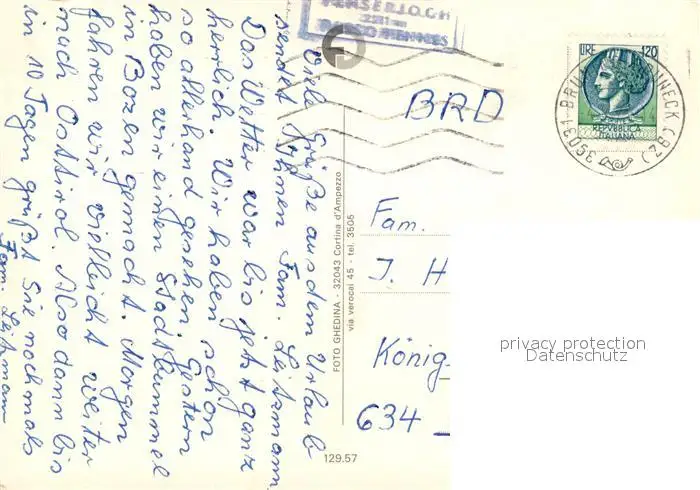 Viele Grüße aus dem Urlaub
sendet Ihnen Fam. Leitzmann
Das Wetter war bis jetzt ganz
herrlich. Wir haben schon
so allerhand gesehen. Gestern
haben wir einen Stadtbummel
in Bozen gemacht. Morgen
fahren wir vielleicht weiter
nach Osttirol. Also dann bis
in 10 Tagen grüßt Sie nochmals
Fam. Leitzmann
FOTO GHEDINA - 32043 Cortina d'Ampezzo
via verocai 45 - tel. 3505
129.57
LIRE 120
REPVBBLICA
ITALIANA
39031 BRUNECK (BZ)
BRD
Fam.
J. H
König-
634
privacy protection
Datenschutz